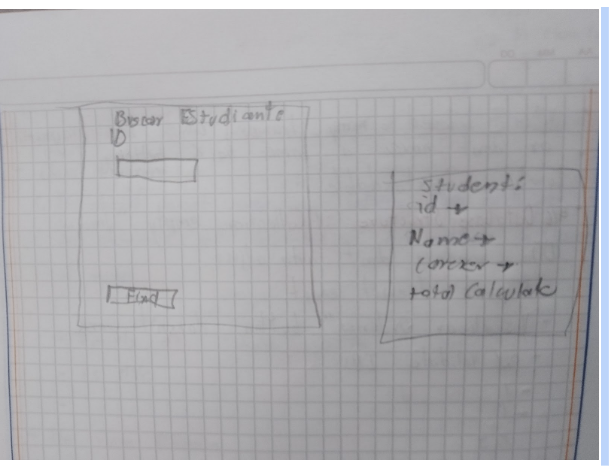 Buscar Estudiante
ID
Find
Student:
id →
Name →
Career →
total Calculate